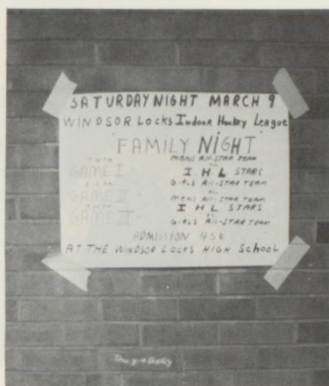 SATURDAY NIGHT MARCH 9
WINDSOR LOCKS Indoor Hockey League
"FAMILY NIGHT"
MENS ALL-STAR TEAM
GAME I
I H L STARS
GIRLS ALL-STAR TEAM
GAME II
MENS ALL-STAR TEAM
I H L STARS
GAME III
GIRLS ALL-STAR TEAM
ADMISSION 45¢
AT THE WINDSOR LOCKS HIGH SCHOOL